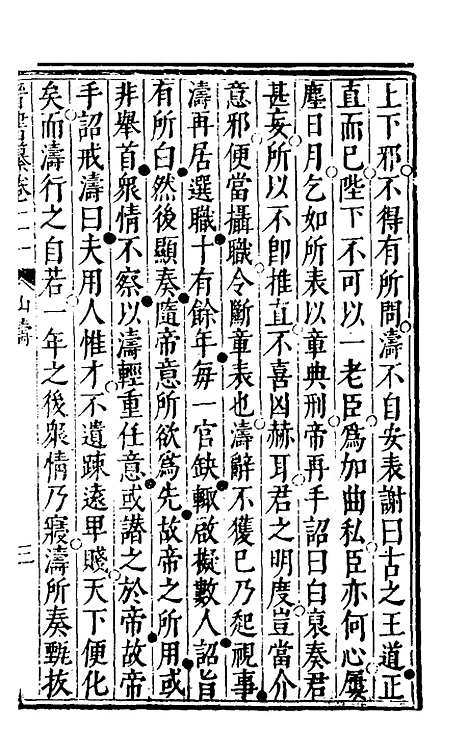 上下邪不得有所問濤不自安表謝曰古之王道正
直而已陛下不可以一老臣爲加曲私臣亦何心屢
塵日月乞如所表以章典刑帝再手詔曰白裒奏君
甚妄所以不卽推直不喜凶赫耳君之明度豈當介
意邪便當攝職令斷章表也濤辭不獲已乃起視事
濤再居選職十有餘年每一官缺輒啟擬數人詔旨
有所向然後顯奏隨帝意所欲爲先故帝之所用或
非舉首衆情不察以濤輕重任意或譖之於帝故帝
手詔戒濤曰夫用人惟才不遺踈遠卑賤天下便化
矣而濤行之自若一年之後衆情乃寢濤所奏甄拔
山濤
三